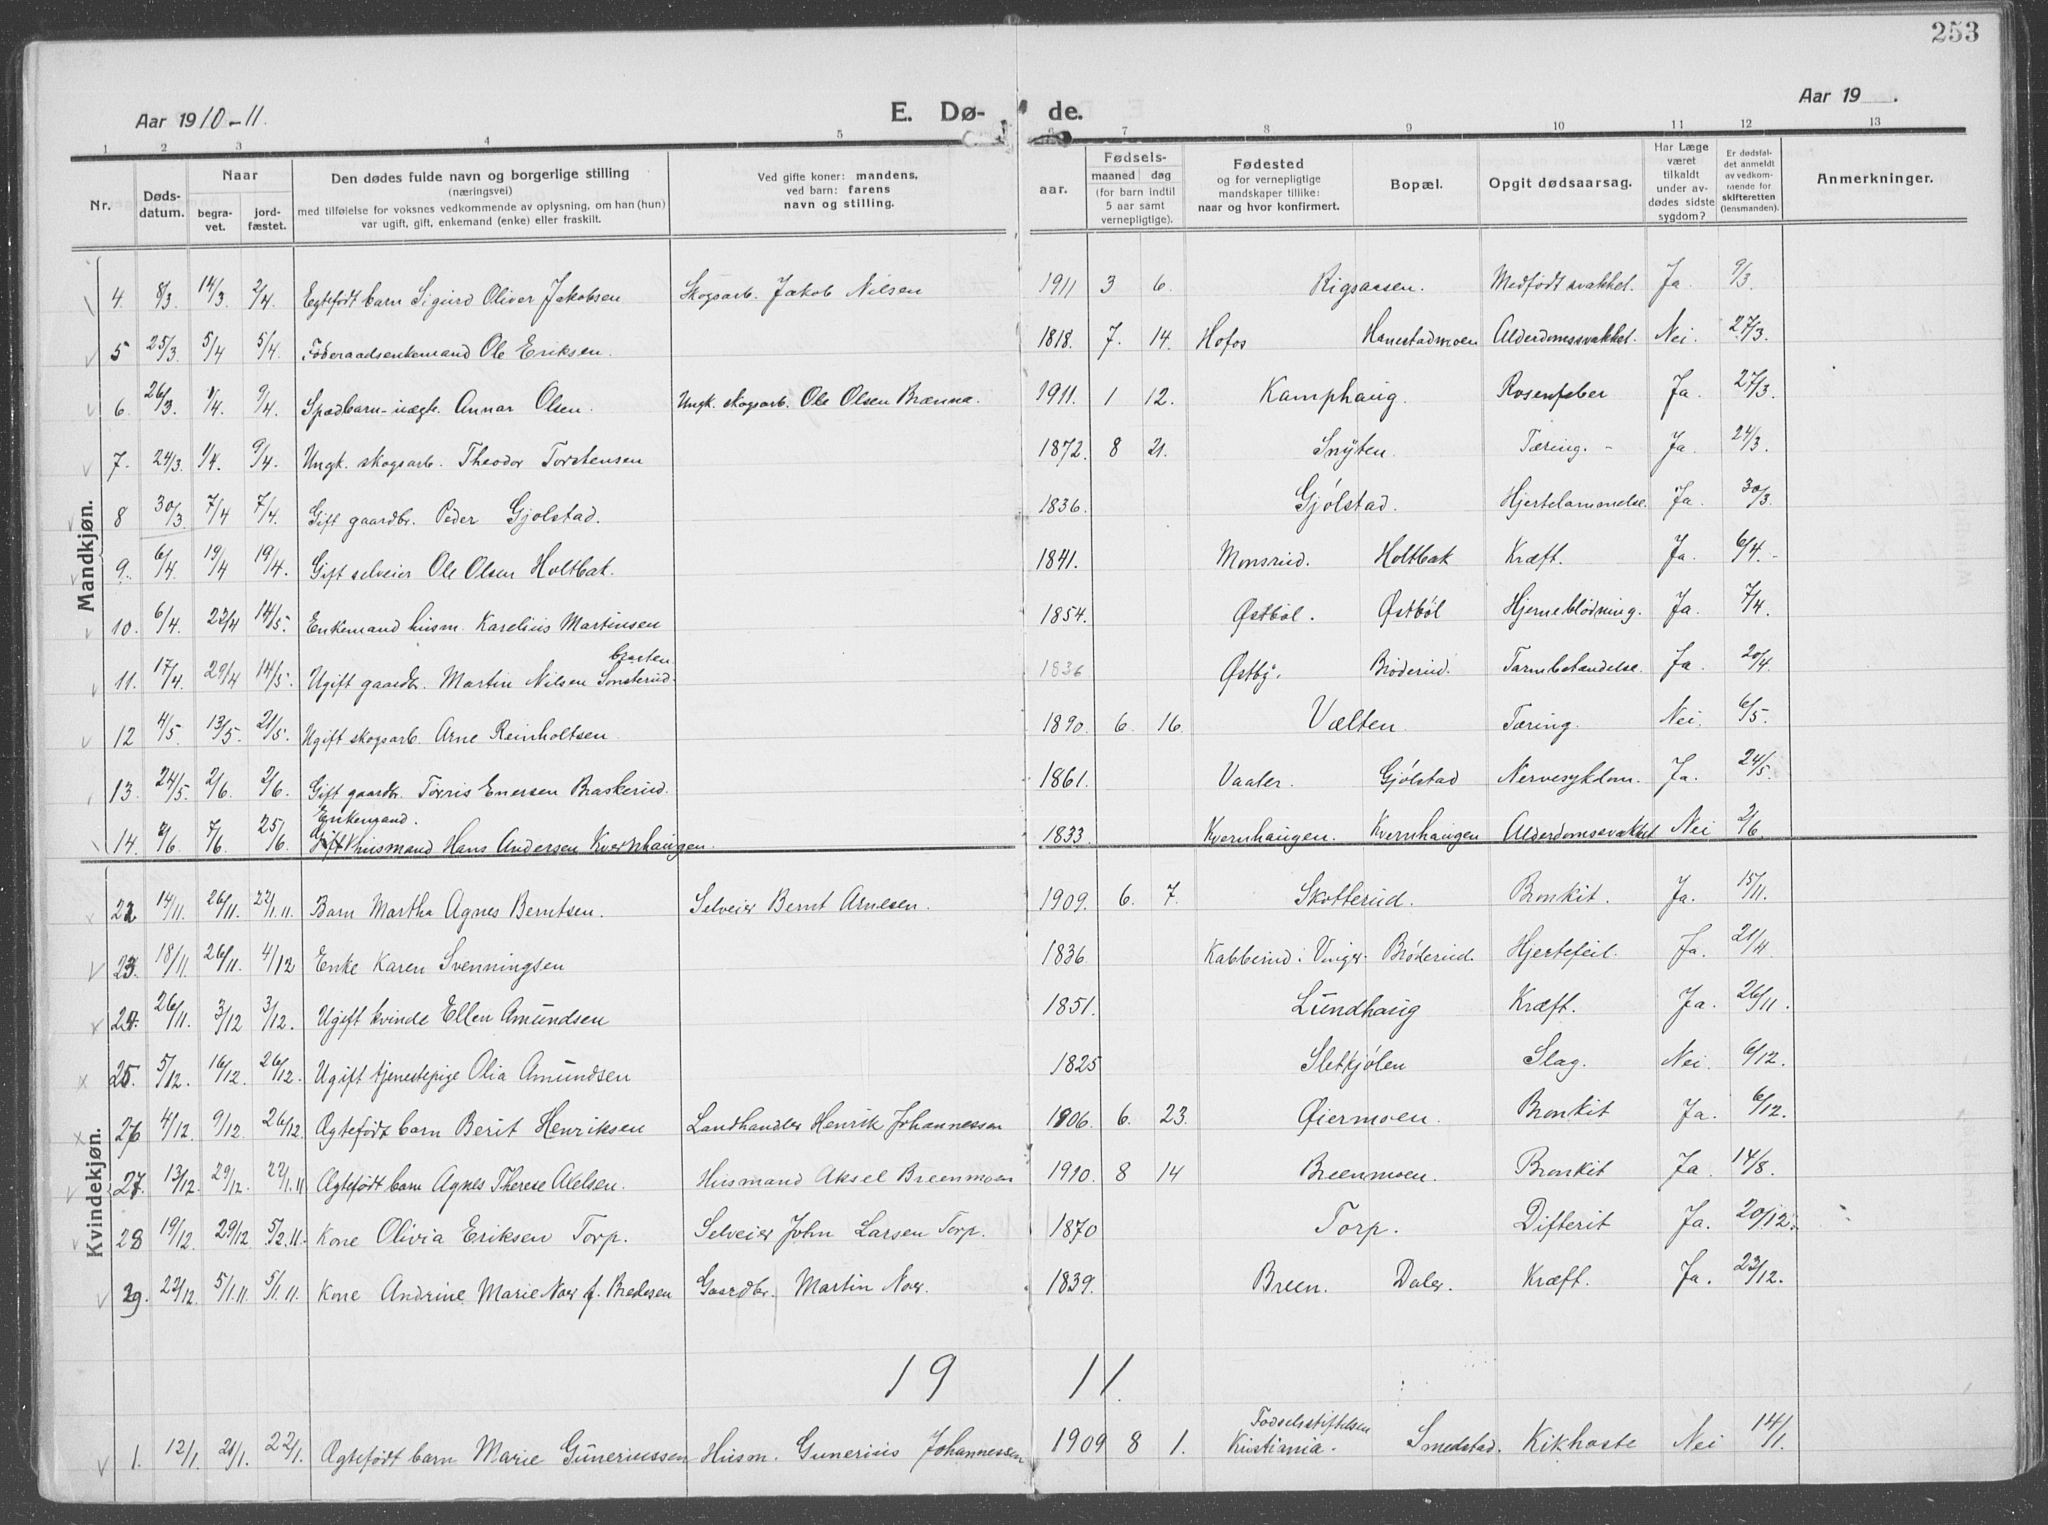 253
Aar 1910-11.
E. Dø- de.
Aar 19 .
1 2 3 4 5 6 7 8 9 10 11 12 13
Nr. Døds-datum. Naar begra-vet. jord-fæstet. Den dødes fulde navn og borgerlige stilling (næringsvei) med tilføielse for voksnes vedkommende av oplysning, om han (hun) var ugift, gift, enkemand (enke) eller fraskilt. Ved gifte koner: mandens, ved barn: farens navn og stilling. aar. Fødsels- maaned dag (for barn indtil 5 aar samt vernepligtige). Fødested og for vernepligtige mandskaper tillike: naar og hvor konfirmert. Bopæl. Opgit dødsaarsag. Har Læge været tilkaldt under av-dødes sidste sygdom? Er dødsfal-det anmeldt av vedkom-mende for skifteretten (lensmanden). Anmerkninger.
Mandkjøn.
4. 8/3. 14/3 2/4. Egtefødt barn Sigurd Oliver Jakobsen Skogsarb. Jakob Nilsen 1911 3 6. Rigsaasen. Medfødt svakhet. Ja. 9/3
5 25/3. 5/4 5/4. Føderaadsenkemand Ole Eriksen. 1818. 7. 14. Hofos Hanestadmoen Alderdomssvakhet. Nei. 27/3.
6. 26/3. 9/4. 9/4. Spædbarn-uægte. Annar Olsen. Ungk. skogsarb. Ole Olsen Brænna. 1911. 1 12. Kamphaug. Rosenfeber Ja. 27/3.
7. 24/3. 9/4. 9/4. Ungk. skogsarb. Theodor Torstensen 1872. 8 21. Snyten. Tæring. - Ja. 24/3.
8 30/3 7/4 7/4. Gift gaardbr. Peder Gjølstad. 1836. Gjølstad. Hjertelammelse. Ja. 30/3.
9. 6/4. 19/4 19/4. Gift selveier Ole Olsen Holtbak. 1841. Monsrud. Holtbak Kræft. Ja. 6/4.
10. 6/4. 22/4 14/5. Enkemand husm. Karelius Martinsen 1854. Østbøl. Østbøl Hjerneblødning. Ja. 7/4.
11. 17/4. 29/4 14/5. Ugift gaardbr. Martin Nilsen Sonsterud. braten 1836 Østby. Brøderud. Tarmbetændelse. Ja. 20/4
12 4/5. 13/5. 21/5. Ugift skogsarb. Arne Reinholtsen. 1890. 6. 16. Vælten. Tæring. Nei. 6/5.
13. 24/5. 2/6. 2/6. Gift gaardbr. Torris Enersen Braskerud. 1861. Vaaler. Gjølstad Nervesykdom. Ja. 24/5.
Enkemand.
14. 2/6. 7/6. 25/6. Gift husmand Hans Andersen Kvernhaugen. 1833. Kvernhaugen. Kvernhaugen Alderdomssvakhet Nei 2/6.
Kvindekjøn.
22 14/11. 26/11. 22/1.11. Barn Martha Agnes Berntsen. Selveier Bernt Arnesen. 1909. 6. 7. Skotterud. Bronkit. Ja. 15/11.
23. 18/11. 26/11. 4/12 Enke Karen Svenningsen 1836 Kabberud i Vinger. Brøderud. Hjertefeil. Ja. 21/11
24. 26/11. 3/12 3/12. Ugift kvinde Ellen Amundsen 1851. Lundhaug Kræft. Ja. 26/11.
25. 5/12. 16/12. 26/12. Ugift tjenestepige Olia Amundsen 1825 Sletkjølen Slag. Nei. 6/12.
26 4/12. 9/12. 26/12 Ægtefødt barn Berit Henriksen Landhandler Henrik Johannessen 1906. 6. 23. Øiermoen. Bronkit Ja. 6/12.
27. 13/12. 29/12. 22/1.11 Ægtefødt barn Agnes Therese Axelsen. Husmand Aksel Breenmoen 1910. 8 14 Breenmoen. Bronkit Ja 14/8.
28 19/12. 29/12. 5/2.11. Kone Olivia Eriksen Torp. Selveier John Larsen Torp. 1870 Torp. Difterit Ja. 20/12.
29. 22/12. 5/1.11. 5/1.11. Kone Andrine Marie Noer f. Bredesen Gaardbr. Martin Noer. 1839. Breen. Daler Kræft. Ja. 23/12.
19 11.
1. 12/1. 21/1. 22/1. Ægtefødt barn Marie Guneriussen Husm. Gunerius Johannessen 1909 8 1. Fødselsstiftelsen Kristiania. Smedstad. Kikhoste Nei 14/1.